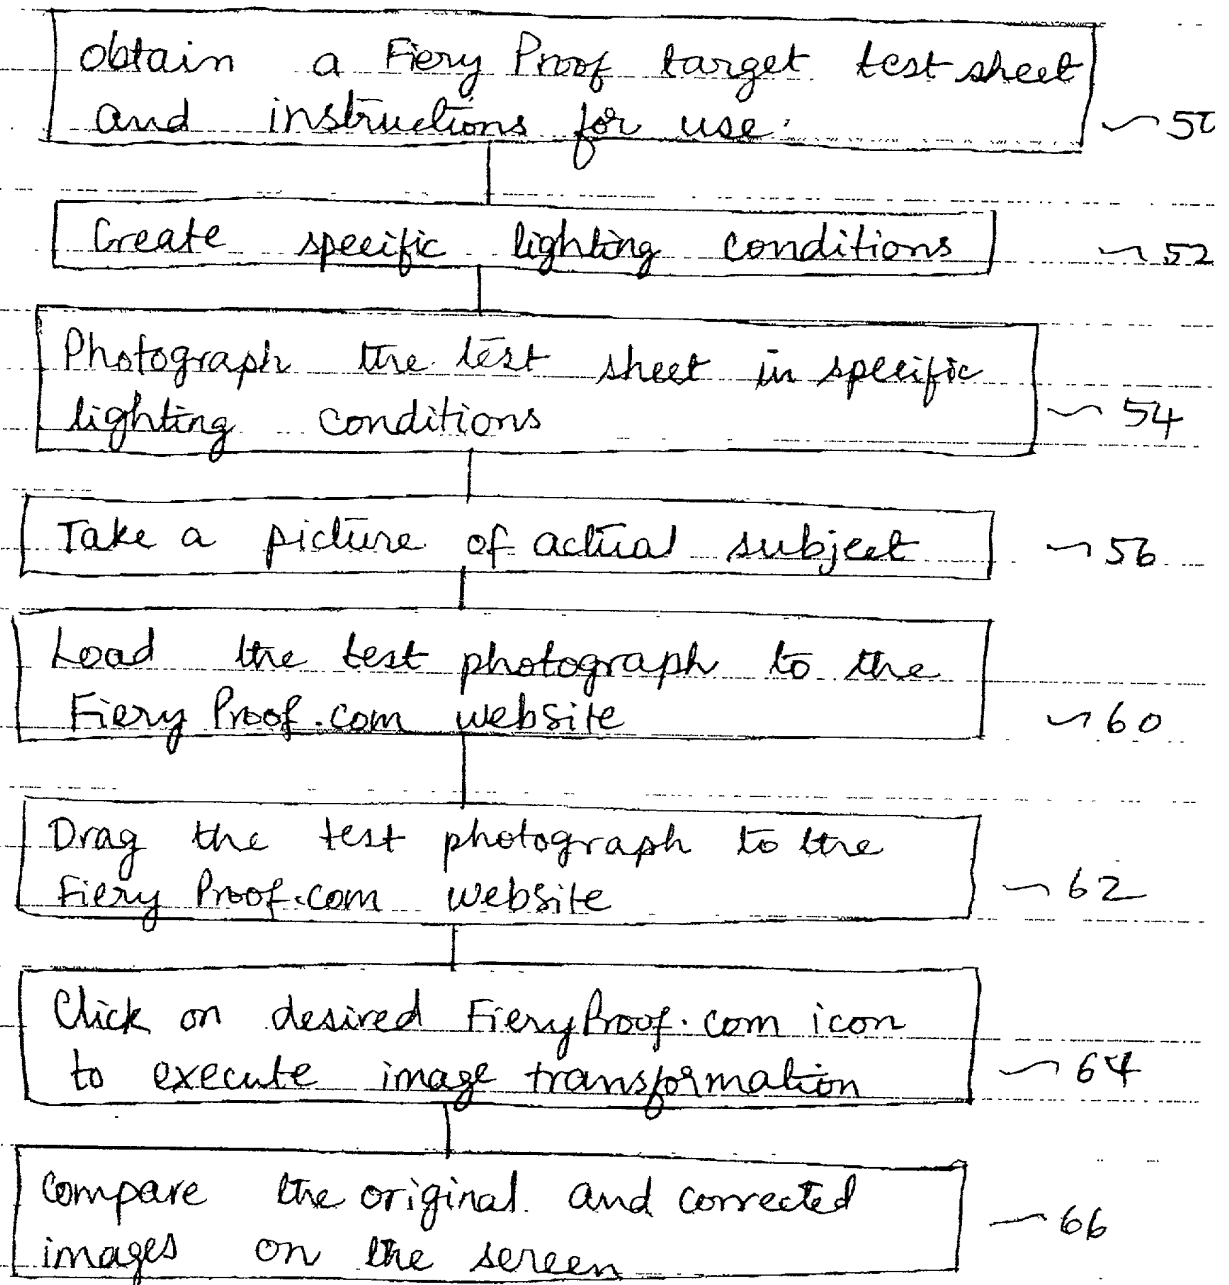 Obtain a Fiery Proof target test sheet
and instructions for use. 50
Create specific lighting conditions 52
Photograph the test sheet in specific
lighting conditions 54
Take a picture of actual subject 56
Load the test photograph to the
Fiery Proof.com website 60
Drag the test photograph to the
Fiery Proof.com website 62
Click on desired FieryProof.com icon
to execute image transformation 64
Compare the original and corrected
images on the screen 66